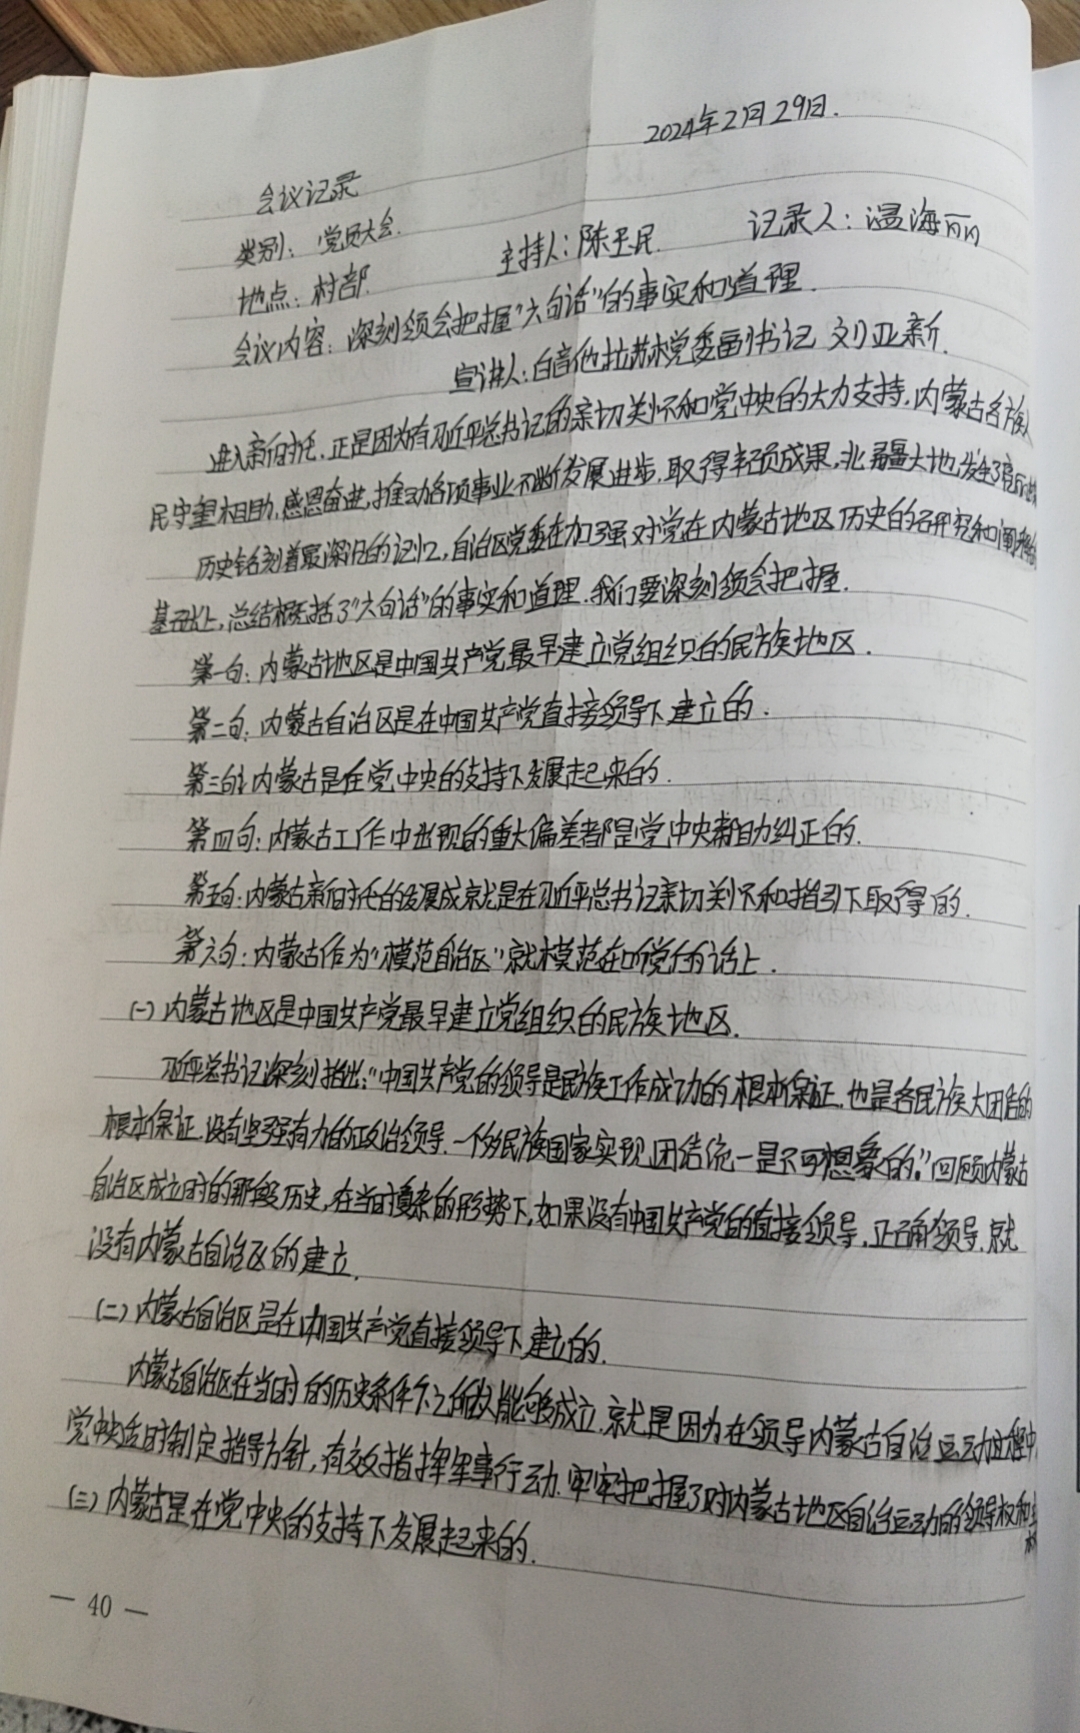 2024年2月29日.
会议记录
类别: 党员大会.
主持人: 陈玉民.
记录人: 温海丽
地点: 村部.
会议内容: 深刻领会把握"六句话"的事实和道理.
宣讲人: 白音他拉苏木党委副书记 刘亚新.
进入新时代, 正是因为有习近平总书记的亲切关怀和党中央的大力支持, 内蒙古各族人
民守望相助, 感恩奋进, 推动各项事业不断发展进步, 取得丰硕成果, 北疆大地发生了
历史铭刻着最深沉的记忆, 自治区党委在加强对党在内蒙古地区历史的研究和阐释的
基础上, 总结概括了"六句话"的事实和道理. 我们要深刻领会把握.
第一句: 内蒙古地区是中国共产党最早建立党组织的民族地区.
第二句: 内蒙古自治区是在中国共产党直接领导下建立的.
第三句: 内蒙古是在党中央的支持下发展起来的.
第四句: 内蒙古工作中出现的重大偏差都是党中央帮助纠正的.
第五句: 内蒙古新时代的发展成就是在习近平总书记亲切关怀和指引下取得的.
第六句: 内蒙古作为"模范自治区"就模范在听党的话上.
(一) 内蒙古地区是中国共产党最早建立党组织的民族地区.
习近平总书记深刻指出:"中国共产党的领导是民族工作成功的根本保证, 也是各民族大团结的
根本保证. 没有坚强有力的政治领导. 一个多民族国家实现团结统一是不可想象的." 回顾内蒙古
自治区成立时的那段历史, 在当时复杂的形势下, 如果没有中国共产党的直接领导, 正确领导, 就
没有内蒙古自治区的建立.
(二) 内蒙古自治区是在中国共产党直接领导下建立的.
内蒙古自治区在当时的历史条件下之所以能够成立, 就是因为在领导内蒙古自治运动过程中
党中央适时制定指导方针, 有效指挥军事行动. 牢牢把握了对内蒙古地区自治运动的领导权和主
(三) 内蒙古是在党中央的支持下发展起来的.
— 40 —